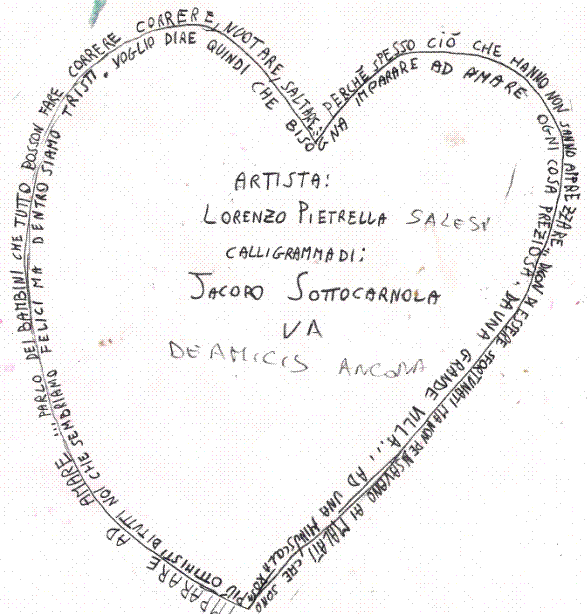 IMPARARE AD AMARE "...PARLO DEI BAMBINI CHE TUTTO POSSON FARE CORRERE CORRERE, NUOTARE, SALTARE; PERCHÉ SPESSO CIÒ CHE HANNO NON SANNO APPREZZARE DI ESSERE SFORTUNATI MA NON PENSAVANO AI MALATI CHE SONO
PIÙ OTTIMISTI DI TUTTI NOI CHE SEMBRIAMO FELICI MA DENTRO SIAMO TRISTI. VOGLIO DIRE QUINDI CHE BISOGNA IMPARARE AD AMARE OGNI COSA PREZIOSA, DA UNA GRANDE VILLA... AD UNA MINUSCOLA
ARTISTA:
LORENZO PIETRELLA SALESI
CALLIGRAMMA DI:
JACOPO SOTTOCARNOLA
VA
DE AMICIS ANCONA